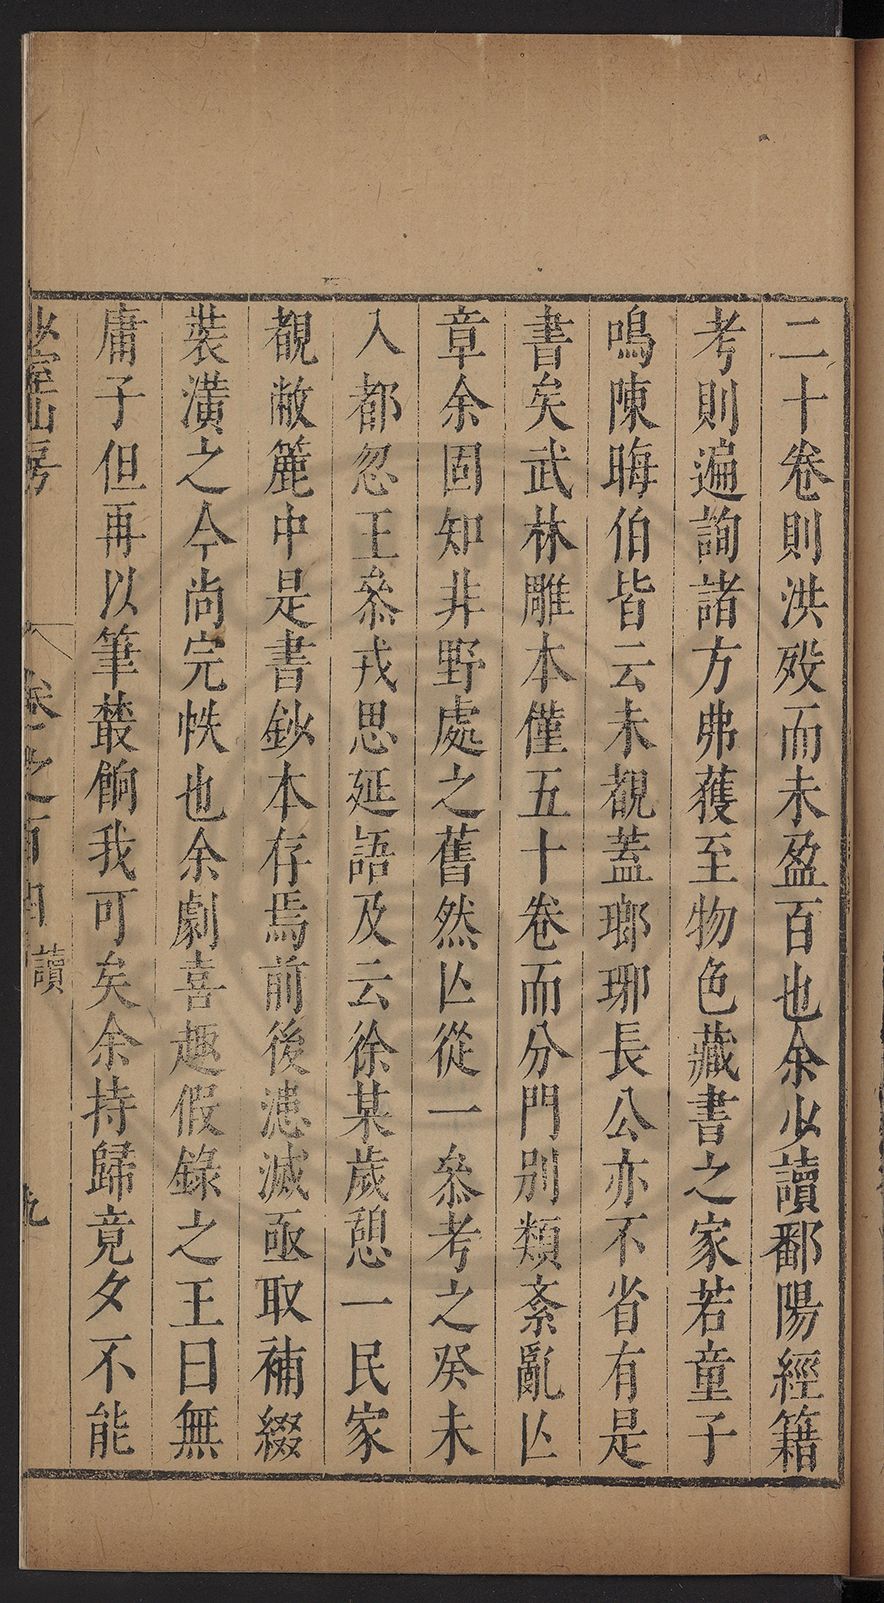 二十卷則洪歿而未盈百也余少讀鄱陽經籍
考則遍詢諸方弗獲至物色藏書之家若童子
鳴陳晦伯皆云未覩蓋瑯琊長公亦不省有是
書矣武林雕本僅五十卷而分門别類紊亂亾
章余固知非野處之舊然亾從一叅考之癸未
入都忽王叅戎思延語及云徐某歲憩一民家
覩敝簏中是書鈔本存焉前後漶滅亟取補綴
裝潢之今尚完帙也余劇喜趣假錄之王曰無
庸子但再以筆叢餉我可矣余持歸竟夕不能
少室山房
卷之百四
讀
九